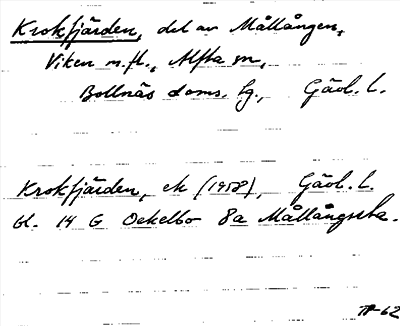 Krokfjärden, del av Mållången,
Viken m.fl., Alfta sn,
Bollnäs doms. hg., Gävl. l.
Krokfjärden, ek (1958), Gävl. l.
bl. 14 G Ockelbo 8a Mållångssta.
TP-62